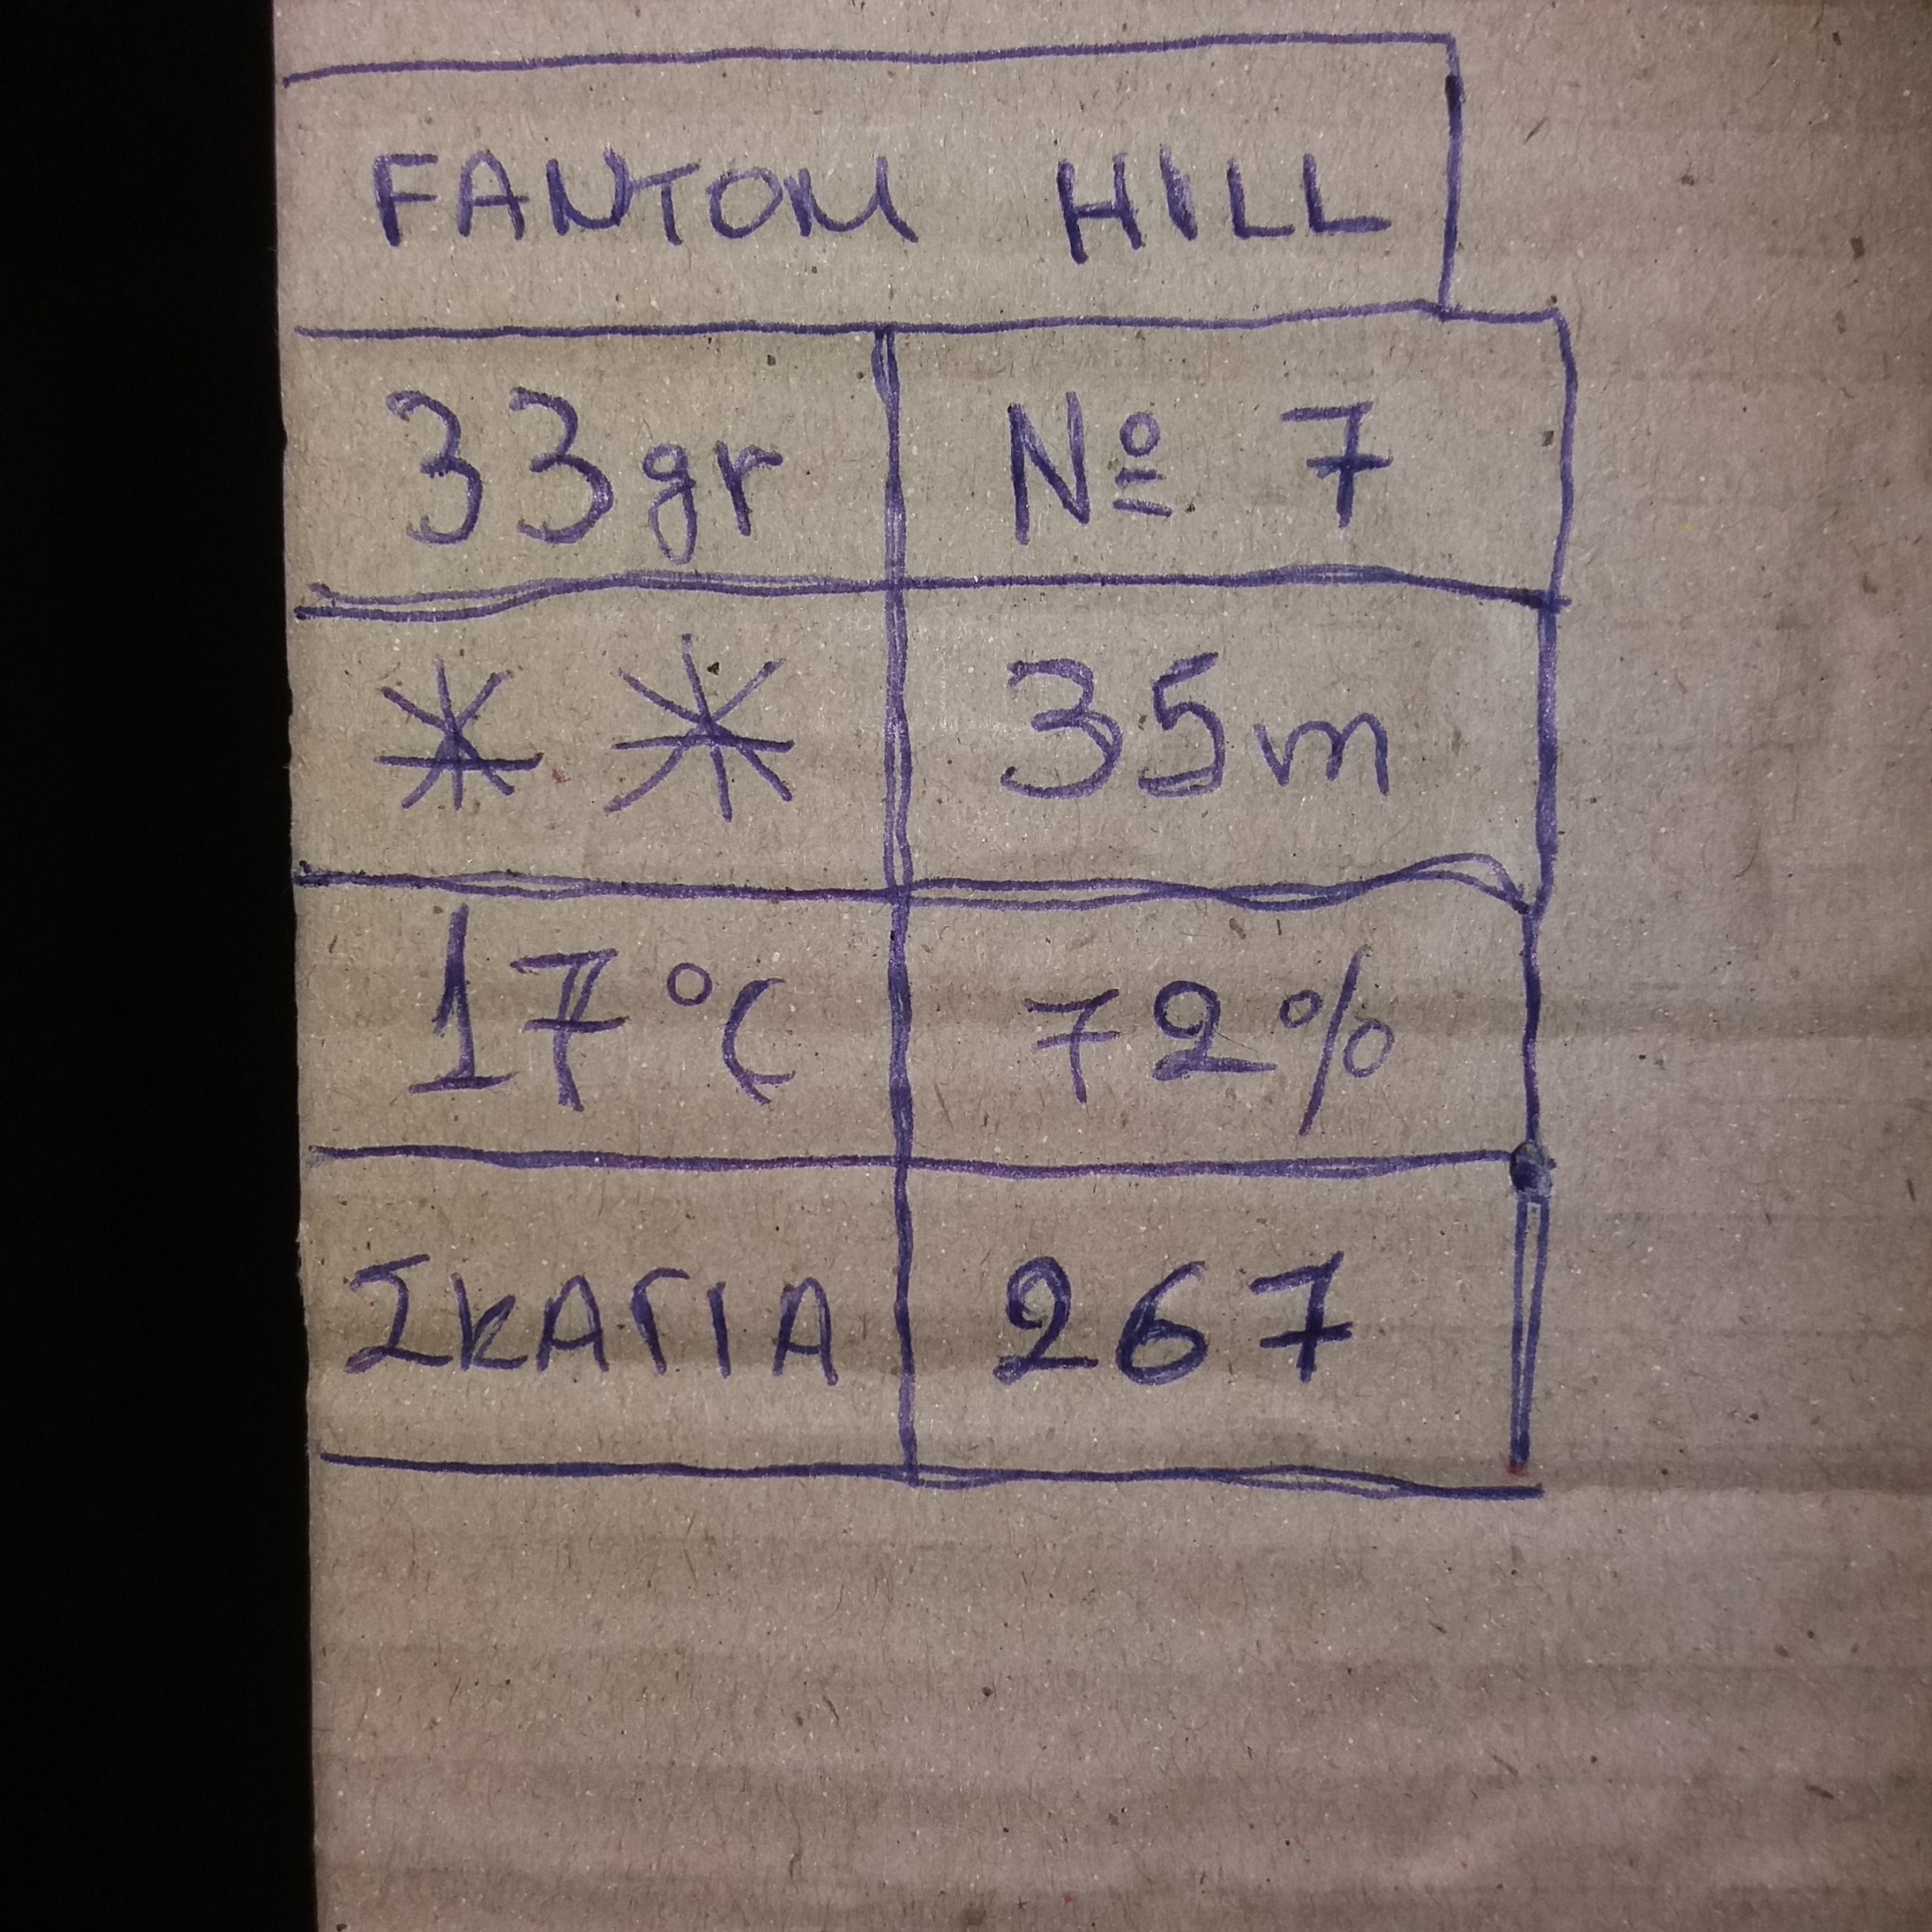 FANTOM HILL
33gr № 7
* * 35m
17°C 72%
ΣΚΑΓΙΑ 267